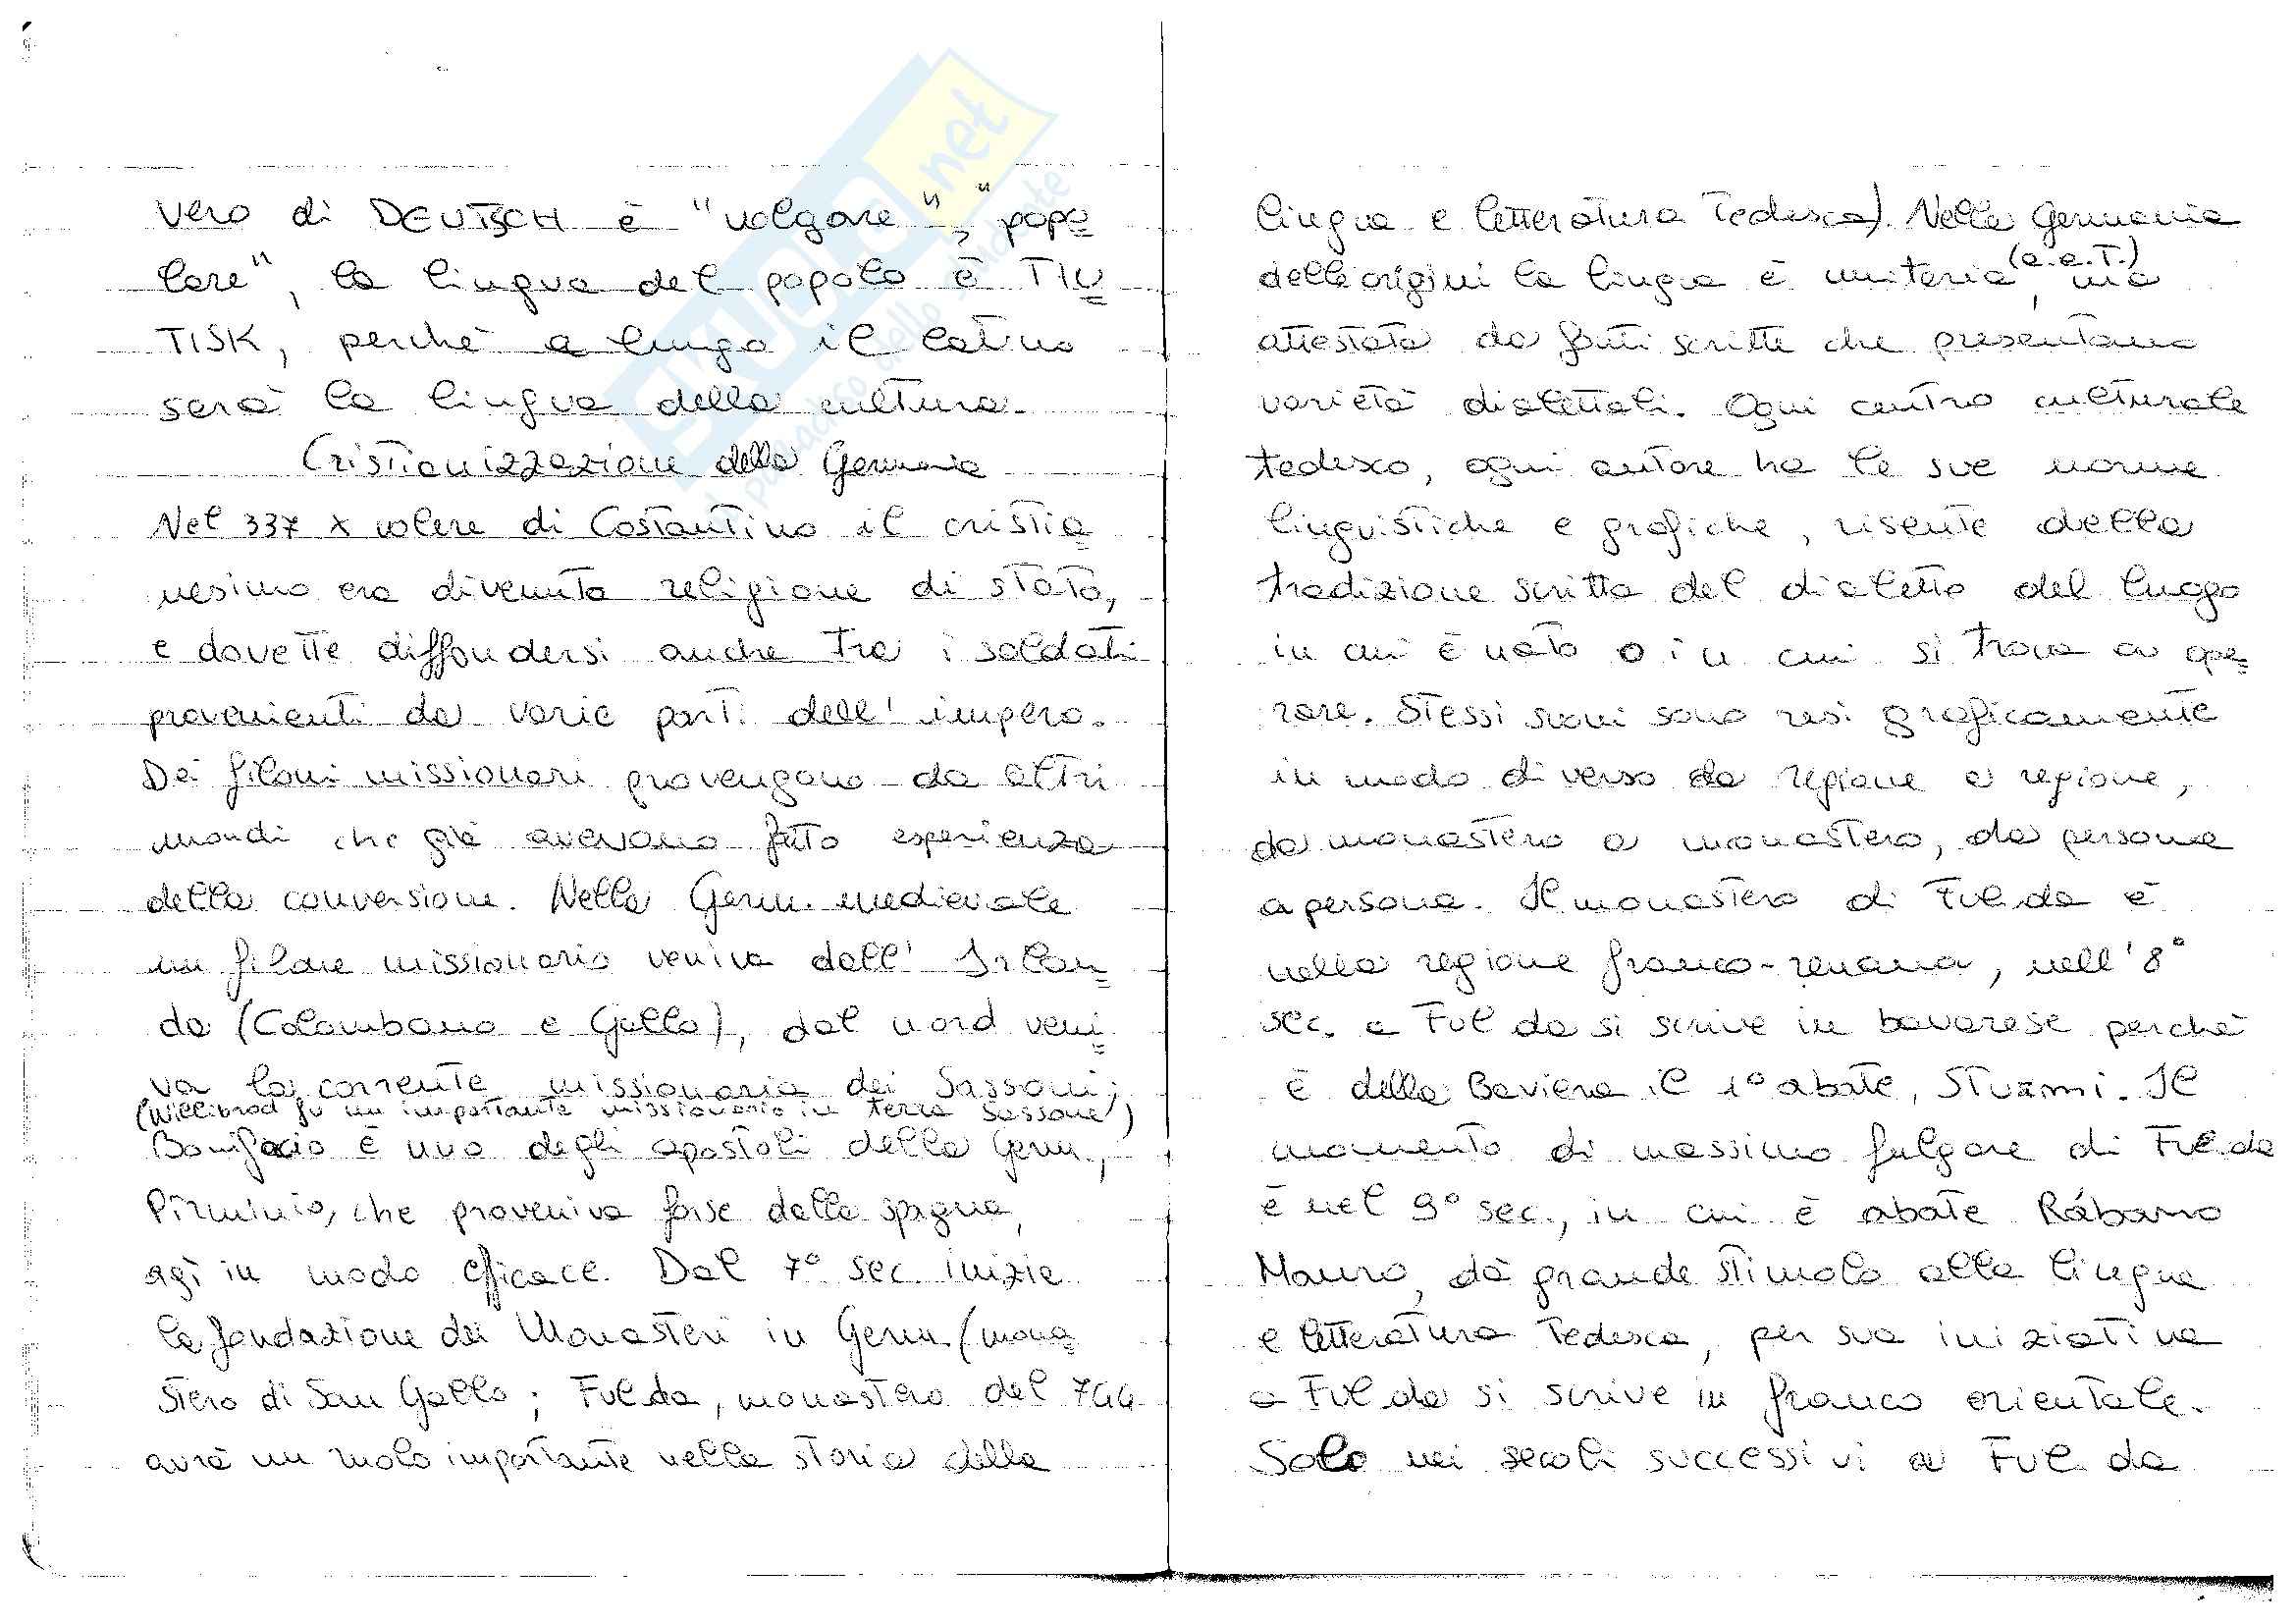 vero di DEUTSCH è "volgare", "popo
lare", la lingua del popolo è TIU
TISK, perchè a lungo il latino
sarà la lingua della cultura.
Cristianizzazione della Germania
Nel 337 x volere di Costantino il cristia
nesimo era divenuta religione di stato,
e dovette diffondersi anche tra i soldati
provenienti da varie parti dell'impero.
Dei filoni missionari provengono da altri
mondi che già avevano fatto esperienza
della conversione. Nella Germ. medievale
un filone missionario veniva dall' Irlan
da (Colombano e Gallo), dal nord veni
va la corrente missionaria dei Sassoni;
(Willibrod fu un importante missionario in terra sassone)
Bonifacio è uno degli apostoli della Germ.,
Pirminio, che proveniva forse dalla spagna,
agì in modo efficace. Dal 7° sec. inizia
la fondazione dei Monasteri in Germ. (mona
stero di San Gallo; Fulda, monastero del 744
avrà un ruolo importante nella storia della
lingua e letteratura Tedesca). Nella Germania
delle origini la lingua è unitaria (a.a.T.), ma
attestata da fonti scritte che presentano
varietà dialettali. Ogni centro culturale
tedesco, ogni autore ha le sue norme
linguistiche e grafiche, risente della
tradizione scritta del dialetto del luogo
in cui è nato o in cui si trova a ope
rare. Stessi suoni sono resi graficamente
in modo diverso da regione a regione,
da monastero a monastero, da persona
a persona. Il monastero di Fulda è
nella regione franco-renana, nell'8°
sec. a Fulda si scrive in bavarese perchè
è della Baviera il 1° abate, Sturmi. Il
momento di massimo fulgore di Fulda
è nel 9° sec., in cui è abate Rábano
Mauro, dà grande stimolo alla lingua
e letteratura Tedesca, per sua iniziativa
a Fulda si scrive in franco orientale.
Solo nei secoli successivi a Fulda